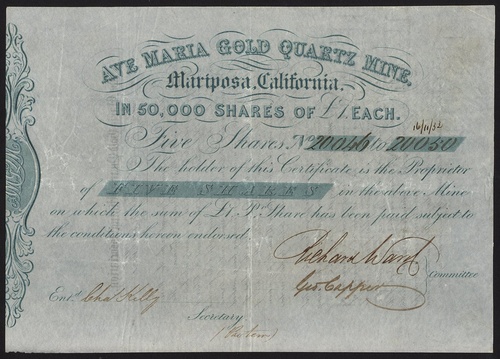 AVE MARIA GOLD QUARTZ MINE,
Mariposa, California.
IN 50,000 SHARES OF £1. EACH.
16/11/52
Five Shares, No. 20046 to 20050
The holder of this Certificate is the Proprietor
of FIVE SHARES in the above Mine
on which the sum of £1. Pr. Share has been paid subject to
the conditions hereon endorsed.
Richard Ward
Committee
Geo. Capper
Entd. Chas Kelly
Secretary